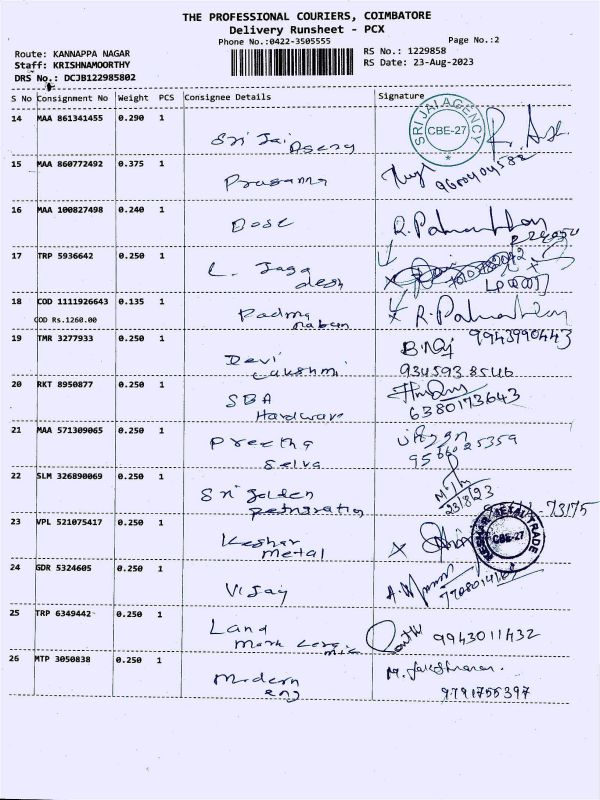 THE PROFESSIONAL COURIERS, COIMBATORE
Delivery Runsheet - PCX
Phone No.:0422-3505555
Page No.:2
Route: KANNAPPA NAGAR
RS No.: 1229858
Staff: KRISHNAMOORTHY
RS Date: 23-Aug-2023
DRS No.: DCJB122985802
S No Consignment No Weight PCS Consignee Details Signature
14 MAA 861341455 0.290 1
Sri Jai Agency
SRI JAI AGENCY
CBE-27
15 MAA 860772492 0.375 1
Prasanna
16 MAA 100827498 0.240 1
Dose
17 TRP 5936642 0.250 1
L. Jaga
desh
18 COD 1111926643 0.135 1
COD Rs.1260.00
Padma
naban
9943990443
19 TMR 3277933 0.250 1
Devi
Lakshmi
9345938546
20 RKT 8950877 0.250 1
SBA
Hardware
6380173643
21 MAA 571309065 0.250 1
Preetha
Selva
9566025359
22 SLM 326890069 0.250 1
Sri golden
23/8/23
23 VPL 521075417 0.250 1
Keshar
metal
73175
KESHAR METAL TRADE
CBE-27
24 GDR 5324605 0.250 1
Vijay
25 TRP 6349442 0.250 1
Land
mark
9943011432
26 MTP 3050838 0.250 1
Modern
eng
9791755397